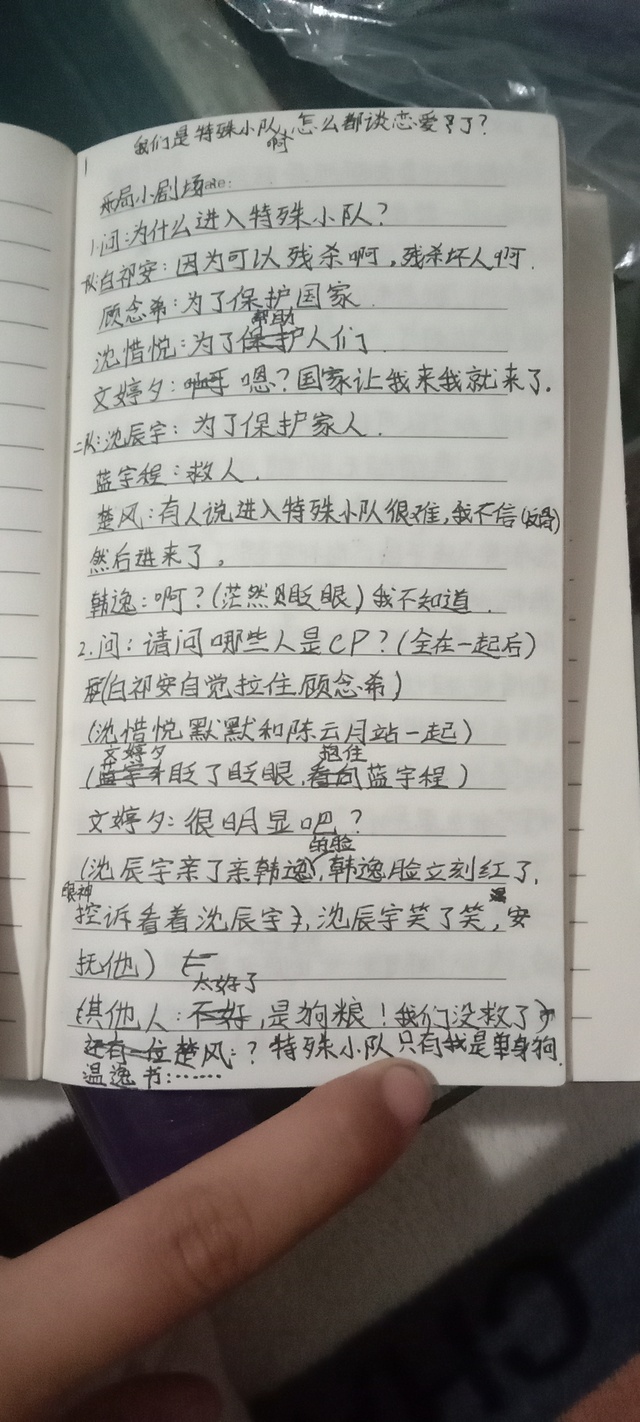 我们是特殊小队啊,怎么都谈恋爱了?
1
开局小剧场
1.问:为什么进入特殊小队?
一队:白祁安:因为可以残杀啊,残杀坏人啊.
顾念希:为了保护国家.
沈惜悦:为了帮助人们.
文婷夕:嗯?国家让我来我就来了.
二队:沈辰宇:为了保护家人.
蓝宇程:救人.
楚风:有人说进入特殊小队很难,我不信
然后进来了。
韩逸:啊?(茫然眨眨眼)我不知道.
2.问:请问哪些人是CP?(全在一起后)
(白祁安自觉拉住顾念希)
(沈惜悦默默和陈云月站一起)
(文婷夕眨了眨眼,抱住蓝宇程)
文婷夕:很明显吧?
(沈辰宇亲了亲韩逸的脸,韩逸脸立刻红了,
眼神控诉看着沈辰宇,沈辰宇笑了笑,安
抚他)
(其他人:太好了,是狗粮!我们没救了)
楚风:?特殊小队只有我是单身狗.
温逸书:……